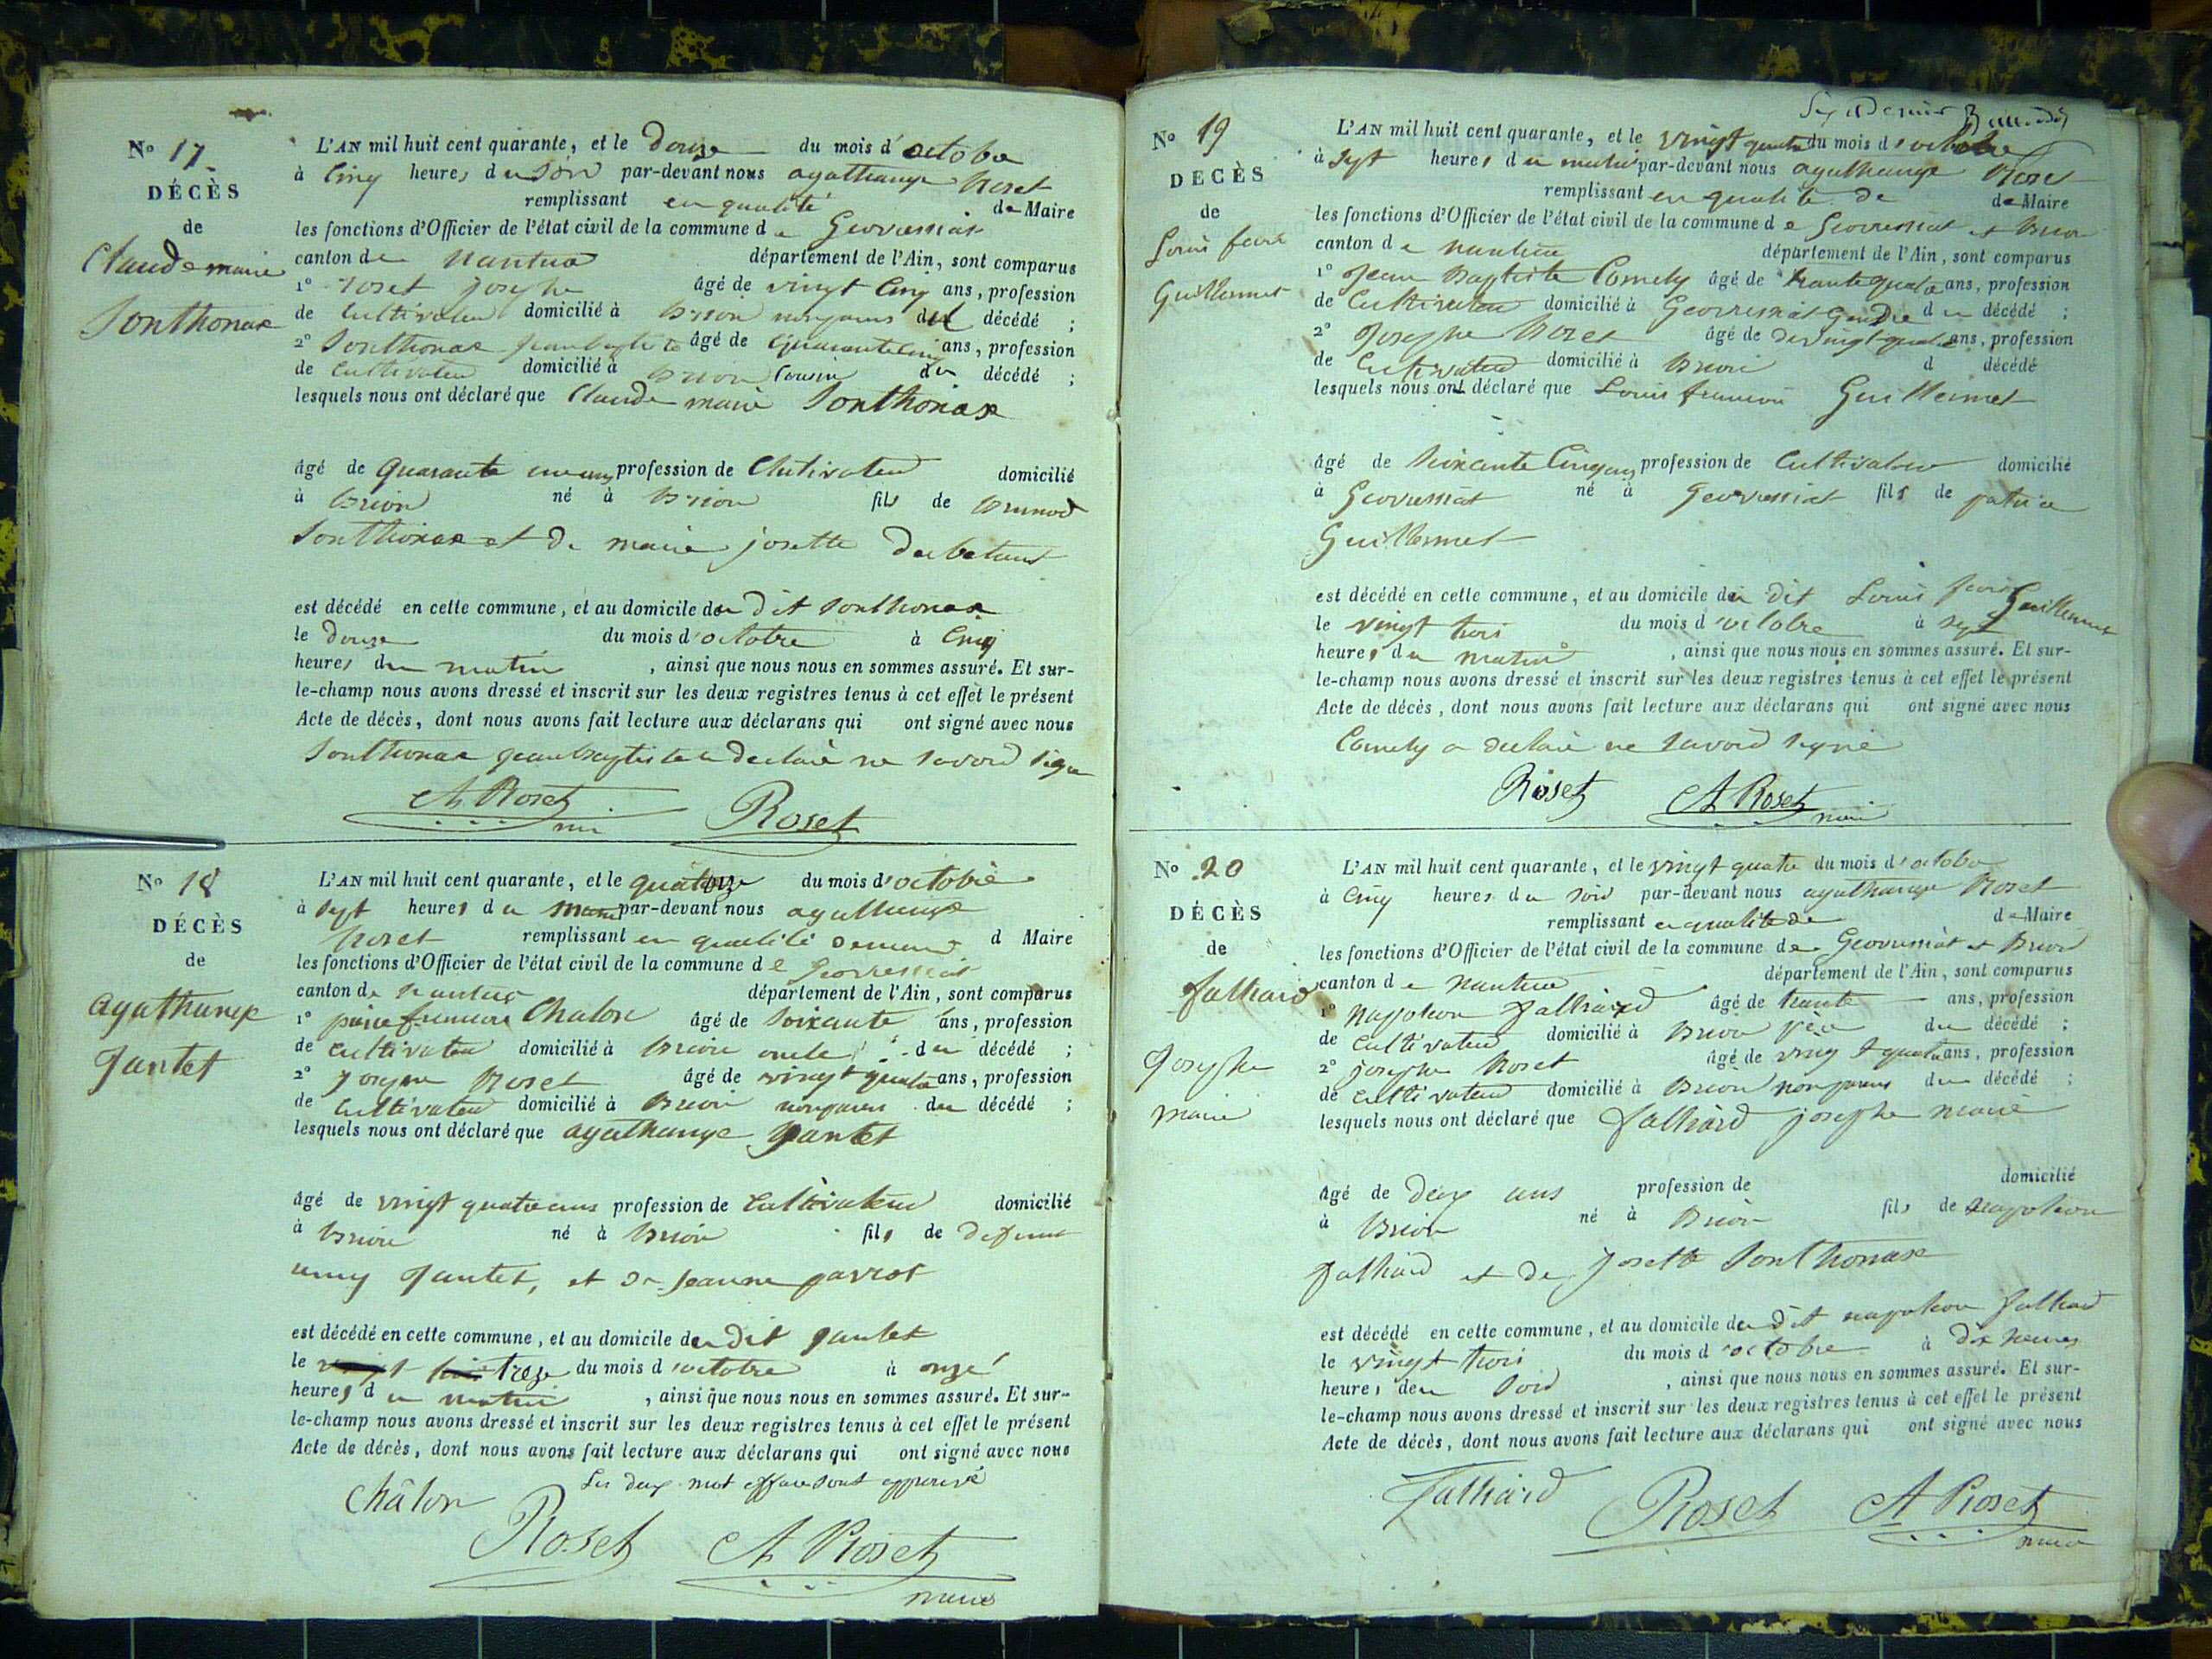 N° 17
DÉCÈS
de
Claude marie
Sonthonax
L'AN mil huit cent quarante, et le Douze du mois d'octobre
à Cinq heures du Soir par-devant nous agathange Roset
remplissant en qualité de Maire
les fonctions d'Officier de l'état civil de la commune de Geovressiat
canton de Nantua département de l'Ain, sont comparus
1° Roset Josephe âgé de vingt Cinq ans, profession
de Cultivateur domicilié à Brion non parens du décédé ;
2° Sonthonax jean baptiste âgé de quarante cinq ans, profession
de Cultivateur domicilié à Brion Cousin du décédé ;
lesquels nous ont déclaré que Claude marie Sonthonax
âgé de Quarante un ans profession de Cultivateur domicilié
à Brion né à Brion fils de
Sonthonax et de marie josette
est décédé en cette commune, et au domicile du dit Sonthonax
le douze du mois d'octobre à Cinq
heures du matin , ainsi que nous nous en sommes assuré. Et sur-
le-champ nous avons dressé et inscrit sur les deux registres tenus à cet effet le présent
Acte de décès, dont nous avons fait lecture aux déclarans qui ont signé avec nous
Sonthonax jean baptiste a declaré ne savoir signe
A Roset Roset
N° 18
DÉCÈS
de
agathange
Jantet
L'AN mil huit cent quarante, et le quatorze du mois d'octobre
à sept heures du matin par-devant nous agathange
Roset remplissant en qualité d Maire
les fonctions d'Officier de l'état civil de la commune de Geovressiat
canton de Nantua département de l'Ain, sont comparus
1° Chalon âgé de Soixante ans, profession
de Cultivateur domicilié à Brion oncle du décédé ;
2° Josephe Roset âgé de vingt quatre ans, profession
de Cultivateur domicilié à Brion non parens du décédé ;
lesquels nous ont déclaré que agathange Jantet
âgé de vingt quatre ans profession de Cultivateur domicilié
à Brion né à Brion fils de Defunt
Jantet, et de Jeanne
est décédé en cette commune, et au domicile du dit Jantet
le treze du mois d'octobre à onze
heures du matin , ainsi que nous nous en sommes assuré. Et sur-
le-champ nous avons dressé et inscrit sur les deux registres tenus à cet effet le présent
Acte de décès, dont nous avons fait lecture aux déclarans qui ont signé avec nous
Les deux mot
châlon Roset A Roset
maire
N° 19
DÉCÈS
de
Louis
Guillermet
L'AN mil huit cent quarante, et le vingt quatre du mois d'octobre
à Sept heures du matin par-devant nous agathange Roset
remplissant en qualité de de Maire
les fonctions d'Officier de l'état civil de la commune de Geovressiat et Brion
canton de Nantua département de l'Ain, sont comparus
1° Jean Baptiste Comely âgé de trante quatre ans, profession
de Cultivateur domicilié à Geovressiat Gendre du décédé ;
2° Josephe Roset âgé de vingt quatre ans, profession
de Cultivateur domicilié à Brion d décédé
lesquels nous ont déclaré que Louis francois Guillermet
âgé de Soixante Cinq ans profession de Cultivateur domicilié
à Geovressiat né à Geovressiat fils de patrice
Guillermet
est décédé en cette commune, et au domicile du dit Louis Guillermet
le vingt trois du mois d'octobre à sept
heures du matin , ainsi que nous nous en sommes assuré. Et sur-
le-champ nous avons dressé et inscrit sur les deux registres tenus à cet effet le présent
Acte de décès, dont nous avons fait lecture aux déclarans qui ont signé avec nous
Comely a declaré ne savoir signé
Roset A Roset
maire
N° 20
DÉCÈS
de
Jalliard
Josephe
marie
L'AN mil huit cent quarante, et le vingt quatre du mois d'octobre
à Cinq heures du soir par-devant nous agathange Roset
remplissant en qualité de de Maire
les fonctions d'Officier de l'état civil de la commune de Geovressiat et Brion
canton de Nantua département de l'Ain, sont comparus
1° Napoleon Jalliard âgé de trante ans, profession
de Cultivateur domicilié à Brion père du décédé ;
2° josephe Roset âgé de vingt quatre ans, profession
de Cultivateur domicilié à Brion non parens du décédé ;
lesquels nous ont déclaré que Jalliard josephe marie
âgé de deux ans profession de domicilié
à Brion né à Brion fils de Napoleon
Jalliard et de Josette Sonthonax
est décédé en cette commune, et au domicile du dit napoleon Jalliard
le vingt trois du mois d'octobre à dix heures
heures du Soir , ainsi que nous nous en sommes assuré. Et sur-
le-champ nous avons dressé et inscrit sur les deux registres tenus à cet effet le présent
Acte de décès, dont nous avons fait lecture aux déclarans qui ont signé avec nous
Jalliard Roset A Roset
maire